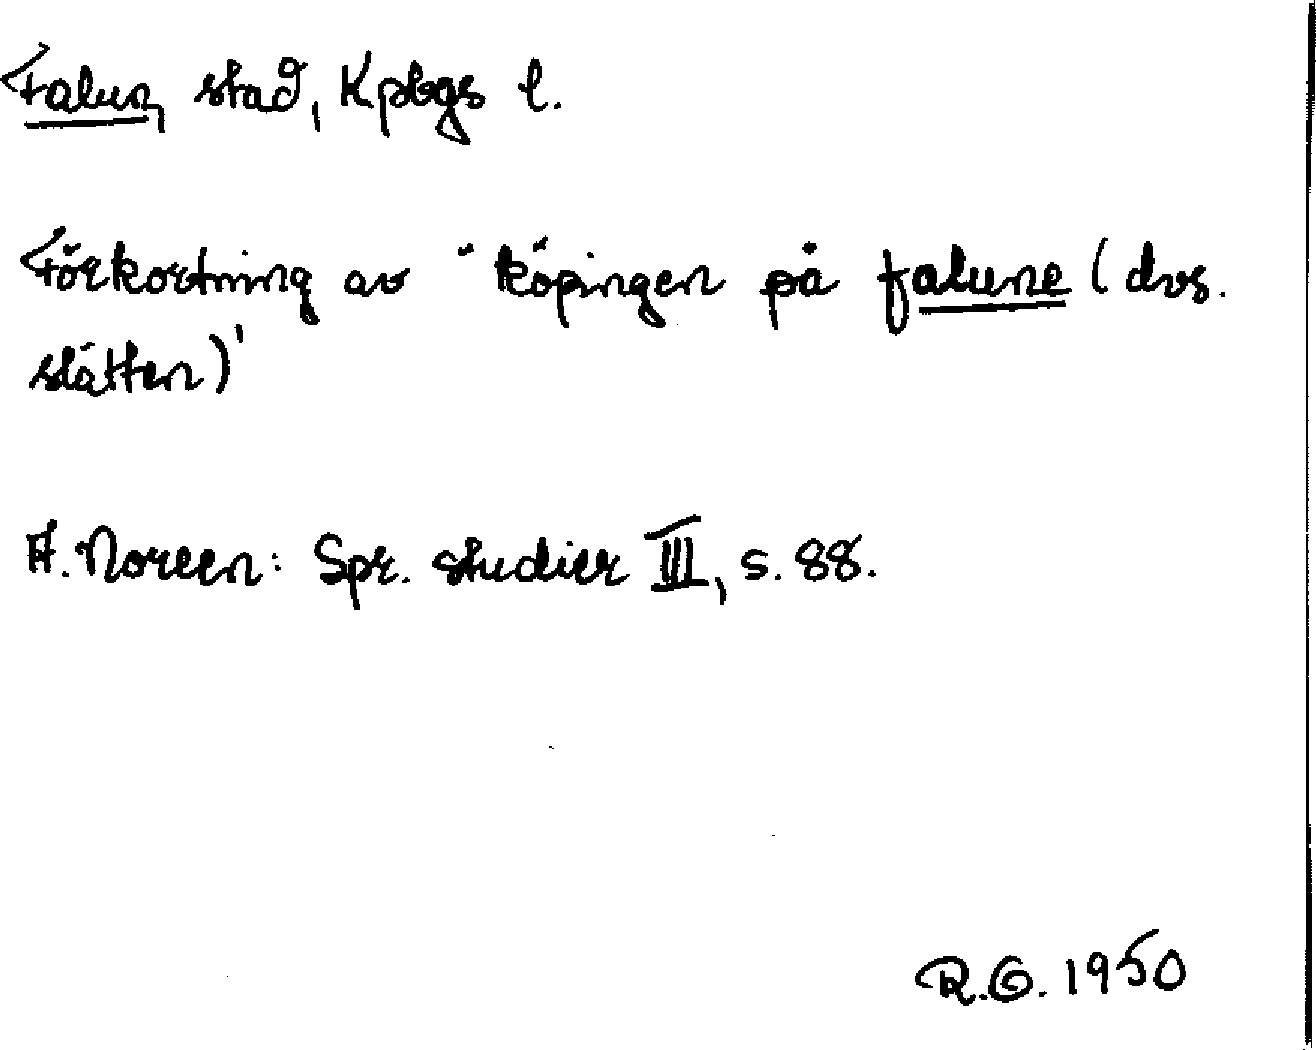 Falun, stad, Kpbgs l.
Förkortning av "köpingen på falune (dvs.
slätten)'
A. Noreen: Spr. studier III, s. 88.
R.G. 1950